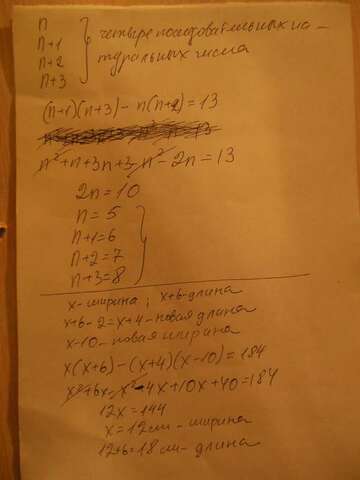 n
n+1
n+2
n+3
четыре последовательных на-
туральных числа
(n+1)(n+3) - n(n+2) = 13
n²+n+3n+3 - n² - 2n = 13
2n = 10
n = 5
n+1=6
n+2=7
n+3=8
x - ширина ; x+6 - длина
x+6-2 = x+4 - новая длина
x-10 - новая ширина
x(x+6) - (x+4)(x-10) = 184
x²+6x - x² - 4x + 10x + 40 = 184
12x = 144
x = 12 см - ширина
12+6 = 18 см - длина